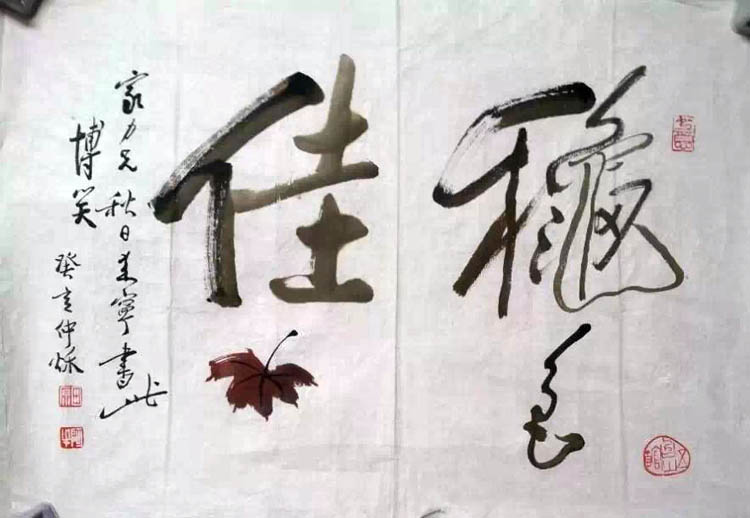 穐色
佳
家力兄秋日来寧書此
博笑
癸亥仲秋